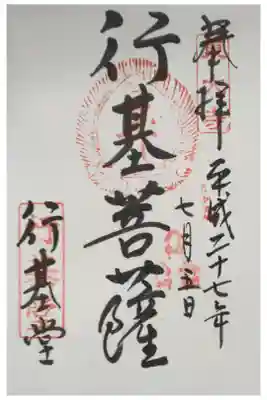 奉拝
平成二十七年
七月五日
行基菩薩
行基堂